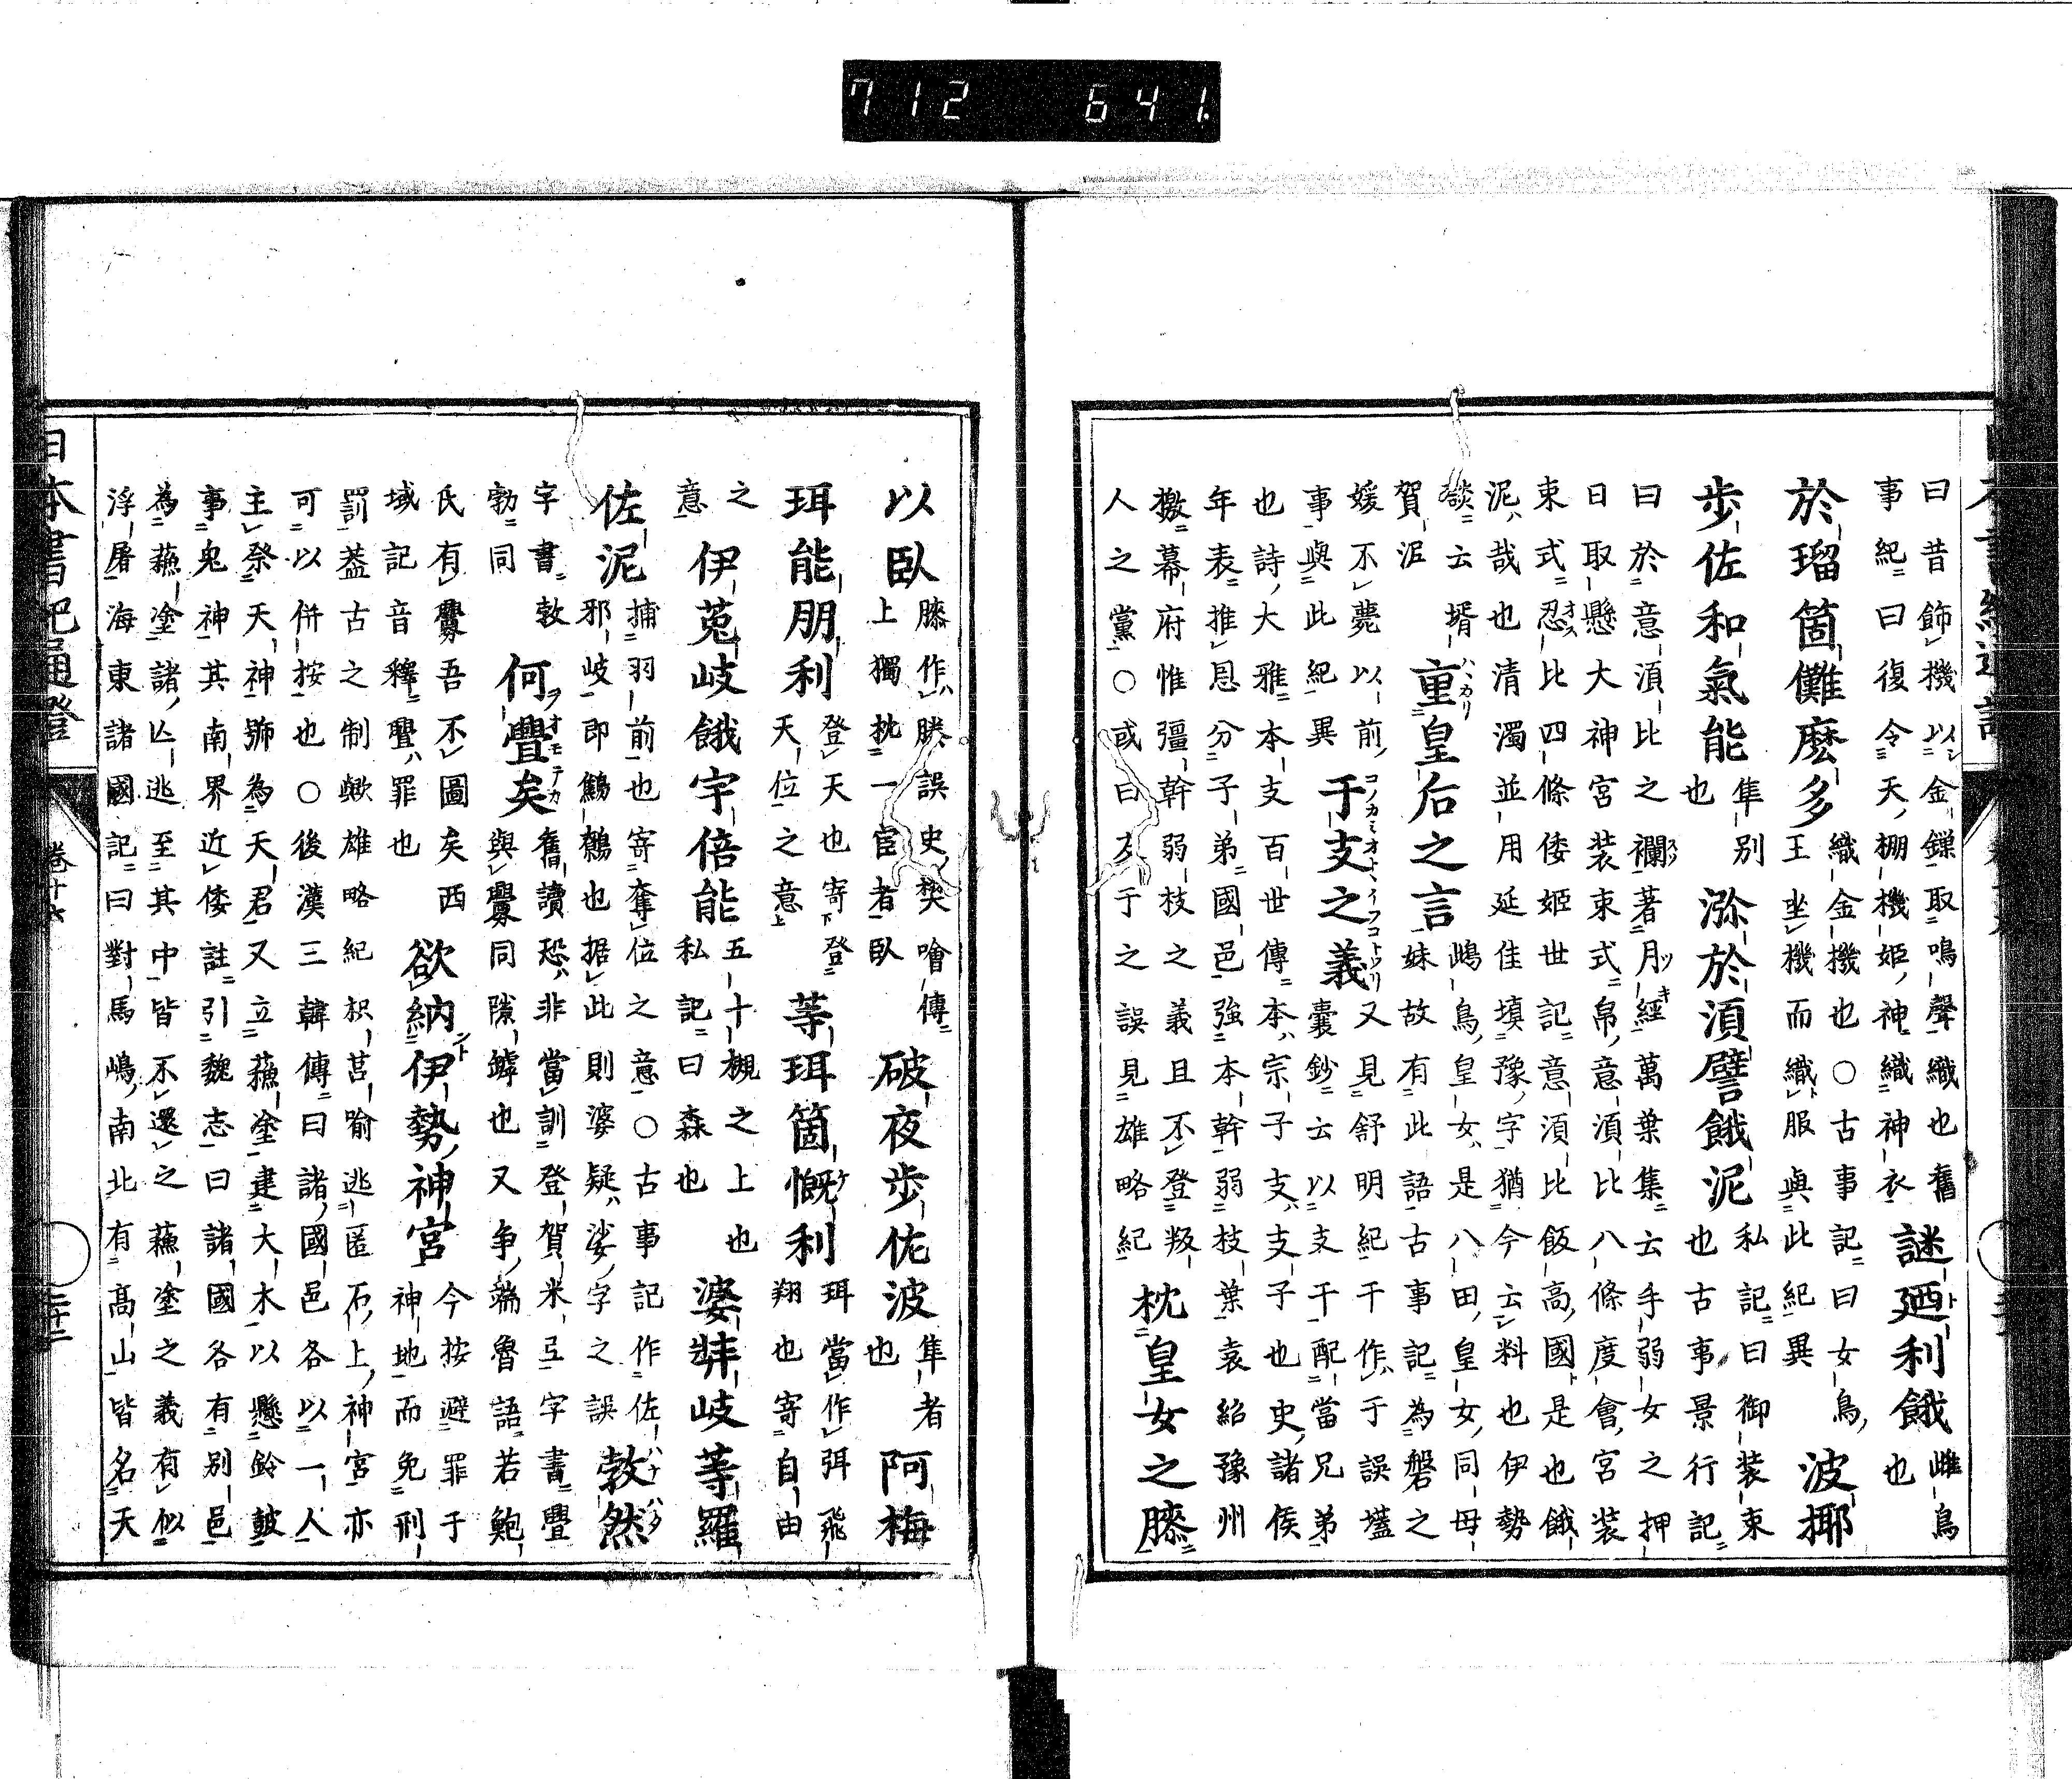 曰昔飾機以金鏁取鳴聲織也舊
事紀曰復令天棚機姬神織神衣
謎廼利餓
雌鳥
也
於瑠箇儺麼多
織金機也○古事記曰女鳥
王坐機而織服與此紀異
波揶
步佐和氣能
隼別
也
瀰於湏譬餓泥
私記曰御装束
也古事景行記
曰於意湏比之襴著月經萬葉集云手弱女之押
日取懸大神宮装束式帛意湏比八條度會宮装
束式忍比四條倭姬世記意湏比飯高國是也餓
泥哉也清濁並用延佳填豫字猶今云料也伊勢
云壻
賀泥
重皇后之言
嶋鳥皇女是八田皇女同母
妹故有此語古事記為磐之
媛不薨以前
事與此紀異
干支之義
又見舒明紀干作于誤壒
囊鈔云以支干配當兄弟
也詩大雅本支百世傳本宗子支支子也史諸侯
年表推恩分子弟國邑強本幹弱枝葉袁紹豫州
檄幕府惟彊幹弱枝之義且不登叛
人之黨○或曰于之誤見雄略紀
枕皇女之膝
以臥
膝作勝誤史樊噲傳
上獨枕一宦者臥
破夜步佐波
隼者
也
阿梅
珥能朋利
登天也寄登
天位之意
等珥箇慨利
珥當作弭飛
翔也寄自由
之
意
伊菟岐餓宇倍能
五十槻之上也
私記曰森也
婆弉岐等羅
佐泥
捕羽前也寄奪位之意○古事記作佐
邪岐即鷦鷯也据此則婆疑娑字之誤
敦然
字書敦
勃同
何舋矣
舊讀恐非當訓登賀米字書舋
與釁同隙罅也又争端魯語若鮑
氏有釁吾不圖矣西
域記音釋舋罪也
欲納伊勢神宮
今按避罪于
神地而免刑
罰蓋古之制歟雄略紀枳莒喻逃匿石上神宮亦
可以併按也○後漢三韓傳曰諸國邑各以一人
主祭天神號為天君又立蘓塗建大木以懸鈴鼓
事鬼神其南界近倭註引魏志曰諸國各有別邑
為蘓塗諸亡逃至其中皆不還之蘓塗之義有似
浮屠海東諸國記曰對馬嶋南北有高山皆名天
日本書紀通證
二十二
712 641